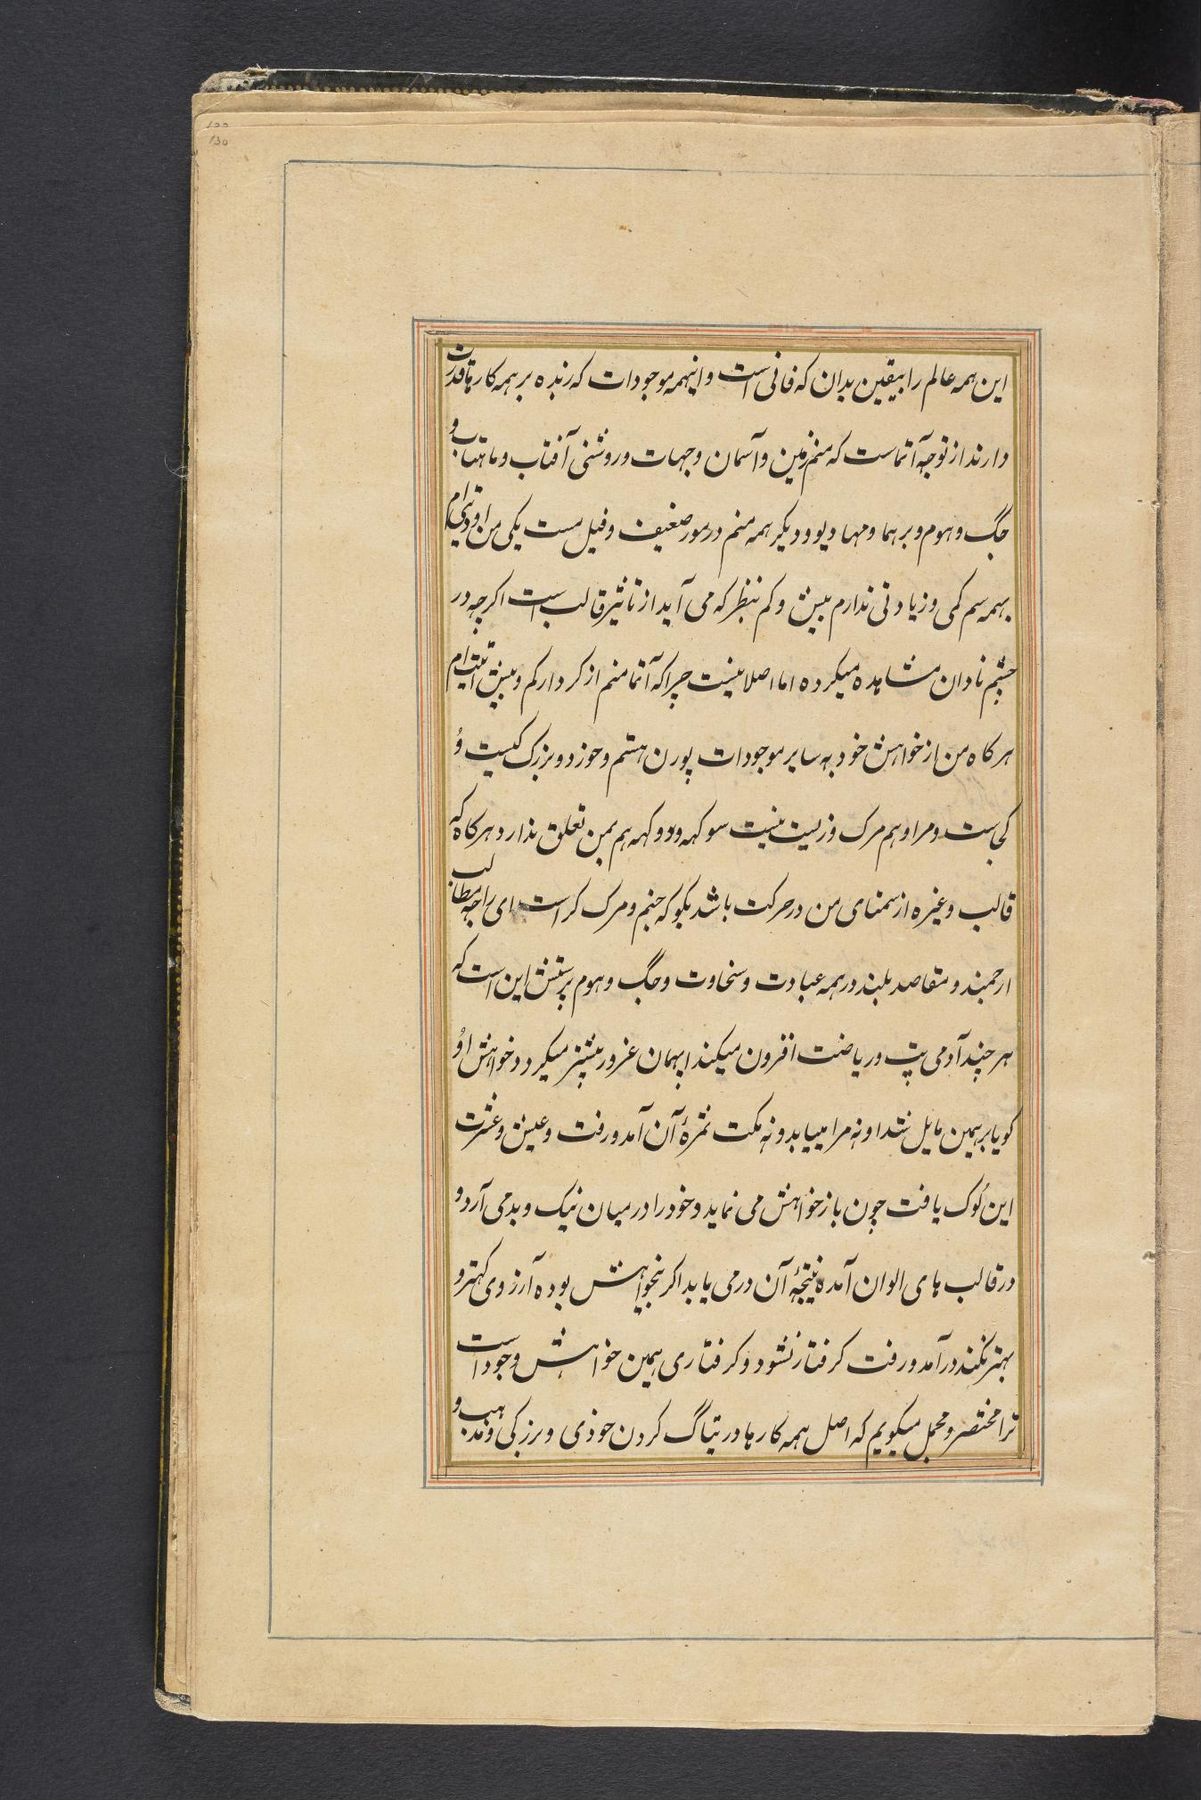 این همه عالم را بیقین بدان که فانی است و اینهمه موجودات که زنده بر همه کارها قدرت
دارند از توجه آتماست که منم زمین و آسمان و جهات و روشنی آفتاب و ماهتاب و
جگ و هوم و برهما و مهادیو و دیگر همه منم در مور ضعیف و فیل مست یکی من
بهمه سم کمی و زیادتی ندارم بیش و کم بنظر که می آید از تاثیر قالب است اکرچه در
چشم نادان مشاهده میکرده اما اصلا نیست چرا که آتما منم از کردار کم و بیش
هرکاه من از خواهش خود به سایر موجودات پورن هستم و خورد و بزرک کیست و
کجاست و مرا وهم مرک و زیست نیست سوکهه و دوکهه هم بمن تعلق ندارد هرکاه که
قالب و غیره از سمنای من در حرکت باشد بکو که جنم و مرک کراست ای راجه مطالب
ارجمند و مقاصد بلند در همه عبادت و سخاوت و جگ و هوم پرستش این است که
هر چند آدمی تپ و ریاضت افزون میکند ابهمان غرور بیشتر میکردد خواهش او
کویا بر همین مایل شد او نه مرا مییابد و نه مکت ثمرهٔ آن آمد و رفت و عیش و عشرت
این لوک یافت چون باز خواهش می نماید و خود را درمیان نیک و بد می آرد و
در قالب های الوان آمده نتیجهٔ آن در می یابد اکر بیخواهش بوده آرزوی کهتر و
بهتر نکند در آمد و رفت کرفتار نشود و کرفتاری همین خواهش وجود است
ترا مختصر و مجمل میکویم که اصل همه کارها در تیاگ کردن خودی و بزرکی و مذهب و